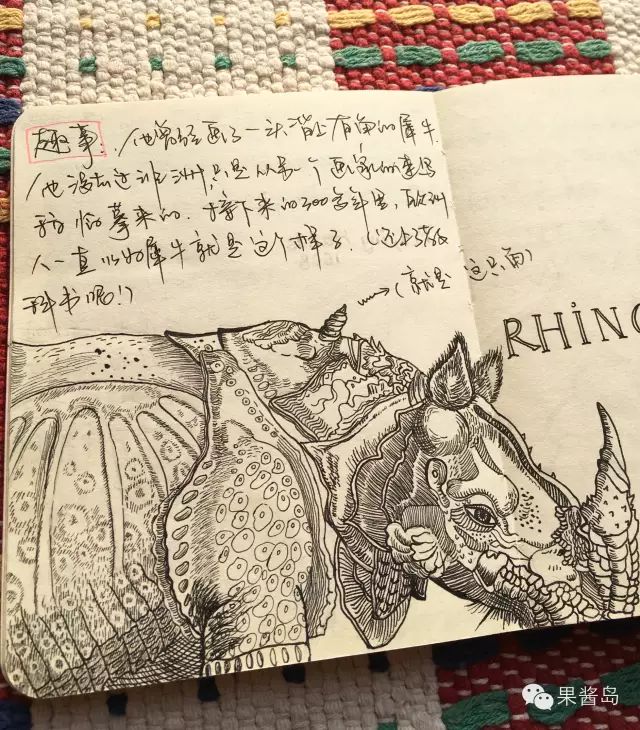 趣事: 他曾经画了一头背上有角的犀牛.
他没去过非洲,只是从某一个画家的速写
稿临摹来的. 接下来的300多年里,欧洲
人一直以为犀牛就是这个样子. (还上了教
科书呢!)
→(就是这只角)
RHINO
果酱岛